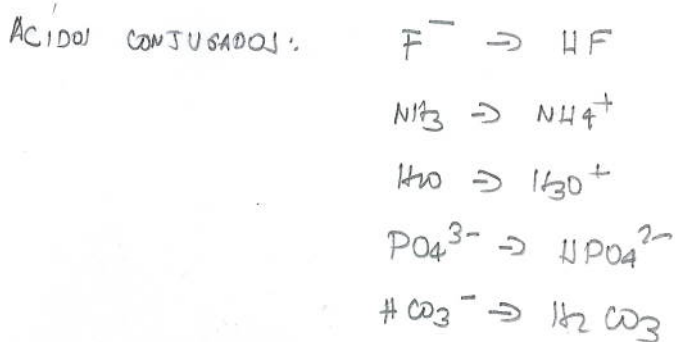 ÁCIDOS CONJUGADOS: F⁻ → HF
NH₃ → NH₄⁺
H₂O → H₃O⁺
PO₄³⁻ → HPO₄²⁻
HCO₃⁻ → H₂CO₃